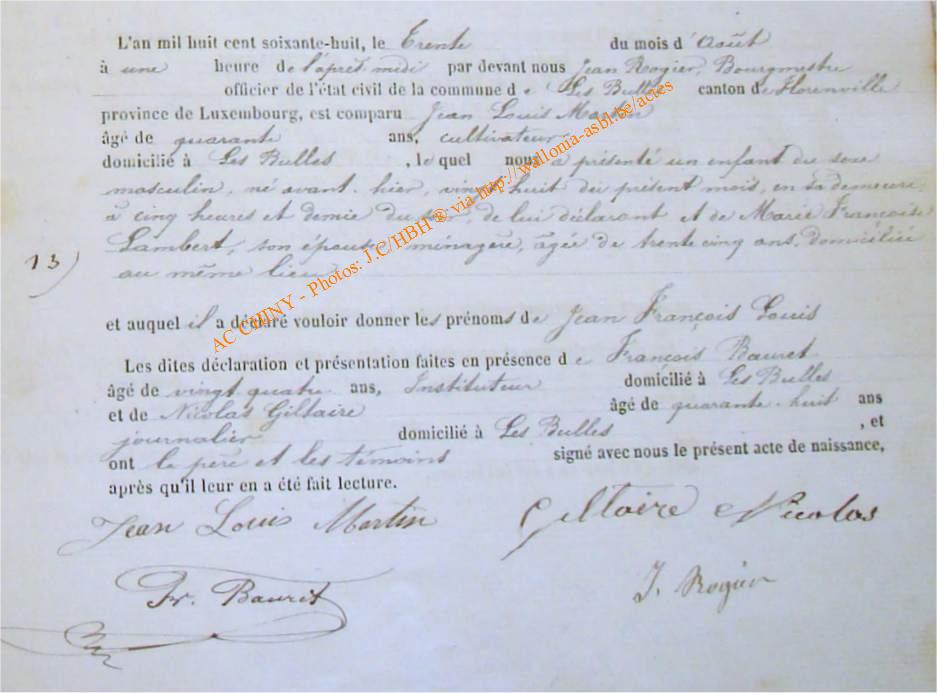 L'an mil huit cent soixante-huit, le Trente du mois d'Août
à une heure de l'après midi par devant nous Jean Rogier, Bourgmestre
officier de l'état civil de la commune de Les Bulles canton de Florenville
province de Luxembourg, est comparu Jean Louis Martin
âgé de quarante ans, cultivateur
domicilié à Les Bulles, lequel nous a présenté un enfant du sexe
masculin, né avant-hier, vingt huit du présent mois, en sa demeure,
à cinq heures et demie du soir, de lui déclarant et de Marie Françoise
Lambert, son épouse, ménagère, âgée de trente cinq ans, domiciliée
13)
au même lieu
et auquel il a déclaré vouloir donner les prénoms de Jean François Louis
Les dites déclaration et présentation faites en présence de François Bauret
âgé de vingt quatre ans, Instituteur domicilié à Les Bulles
et de Nicolas Giltaire âgé de quarante-huit ans
journalier domicilié à Les Bulles, et
ont le père et les témoins signé avec nous le présent acte de naissance,
après qu'il leur en a été fait lecture.
Jean Louis Martin Giltaire Nicolas
Fr. Bauret J. Rogier
AC CHINY - Photos: J.C/HBH ® via http://wallonia-asbl.be/actes